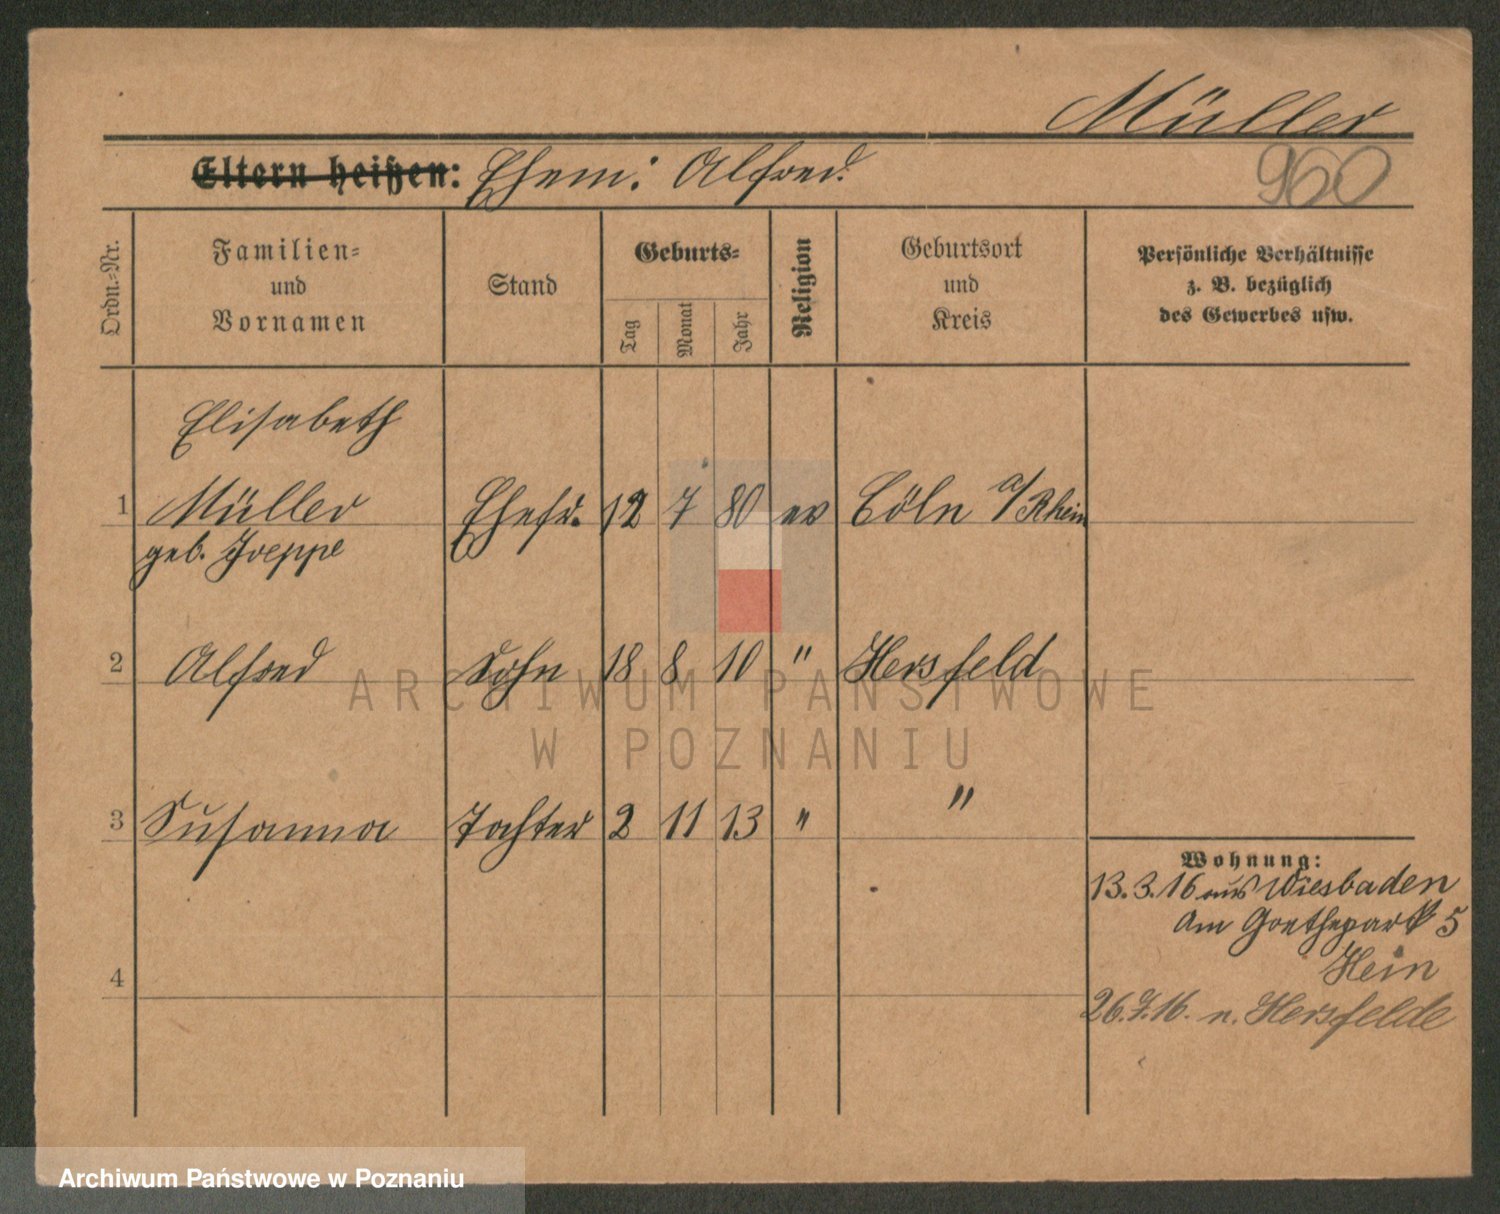 Müller
Eltern heißen: Ehem: Alfred.
960
Ordn.-Nr.
Familien-
und
Vornamen
Stand
Geburts-
Tag
Monat
Jahr
Religion
Geburtsort
und
Kreis
Persönliche Verhältnisse
z. B. bezüglich
des Gewerbes usw.
Elisabeth
1 Müller Ehefr. 12 7 80 ev Cöln a/Rhein
geb.
2 Alfred Sohn 18 8 10 " Hersfeld
ARCHIWUM PAŃSTWOWE
W POZNANIU
"
3 Susanna Tochter 2 11 13 "
Wohnung:
13.3.16 aus Wiesbaden
Am Goethepark 5
Hein
4
26.7.16. n. Hersfelde
Archiwum Państwowe w Poznaniu